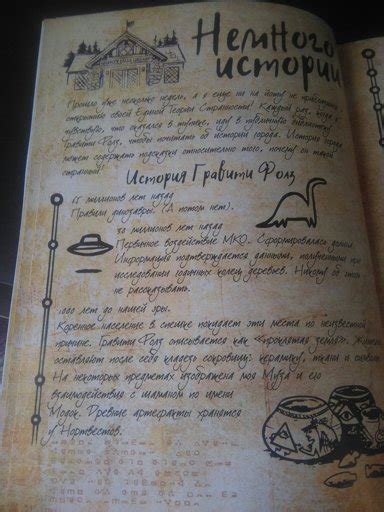 Немного
истории
Прошло уже несколько недель, а я еще ни на йоту не приблизился
к открытию своей Единой Теории Странности! Каждый раз, когда я
чувствую, что оказался в тупике, иду в публичную библиотеку
Гравити Фолз, чтобы почитать об истории города. История города
может содержать подсказки относительно того, почему он такой
странный!
История Гравити Фолз
65 миллионов лет назад
Правили динозавры. (А потом нет).
30 миллионов лет назад
Первичное воздействие МКО. Сформировалась долина.
Информация подтверждается данными, полученными при
исследовании годичных колец деревьев. Никому об этом
не рассказывать.
1000 лет до нашей эры.
Коренное население в спешке покидает эти места по неизвестной
причине. Гравити Фолз описывается как «проклятая земля». Жители
оставляют после себя кладезь сокровищ: керамику, ткани и символы.
На некоторых предметах изображена моя Муза и его
взаимодействия с шаманом по имени
Модок. Древние артефакты хранятся
у Нортвестов.